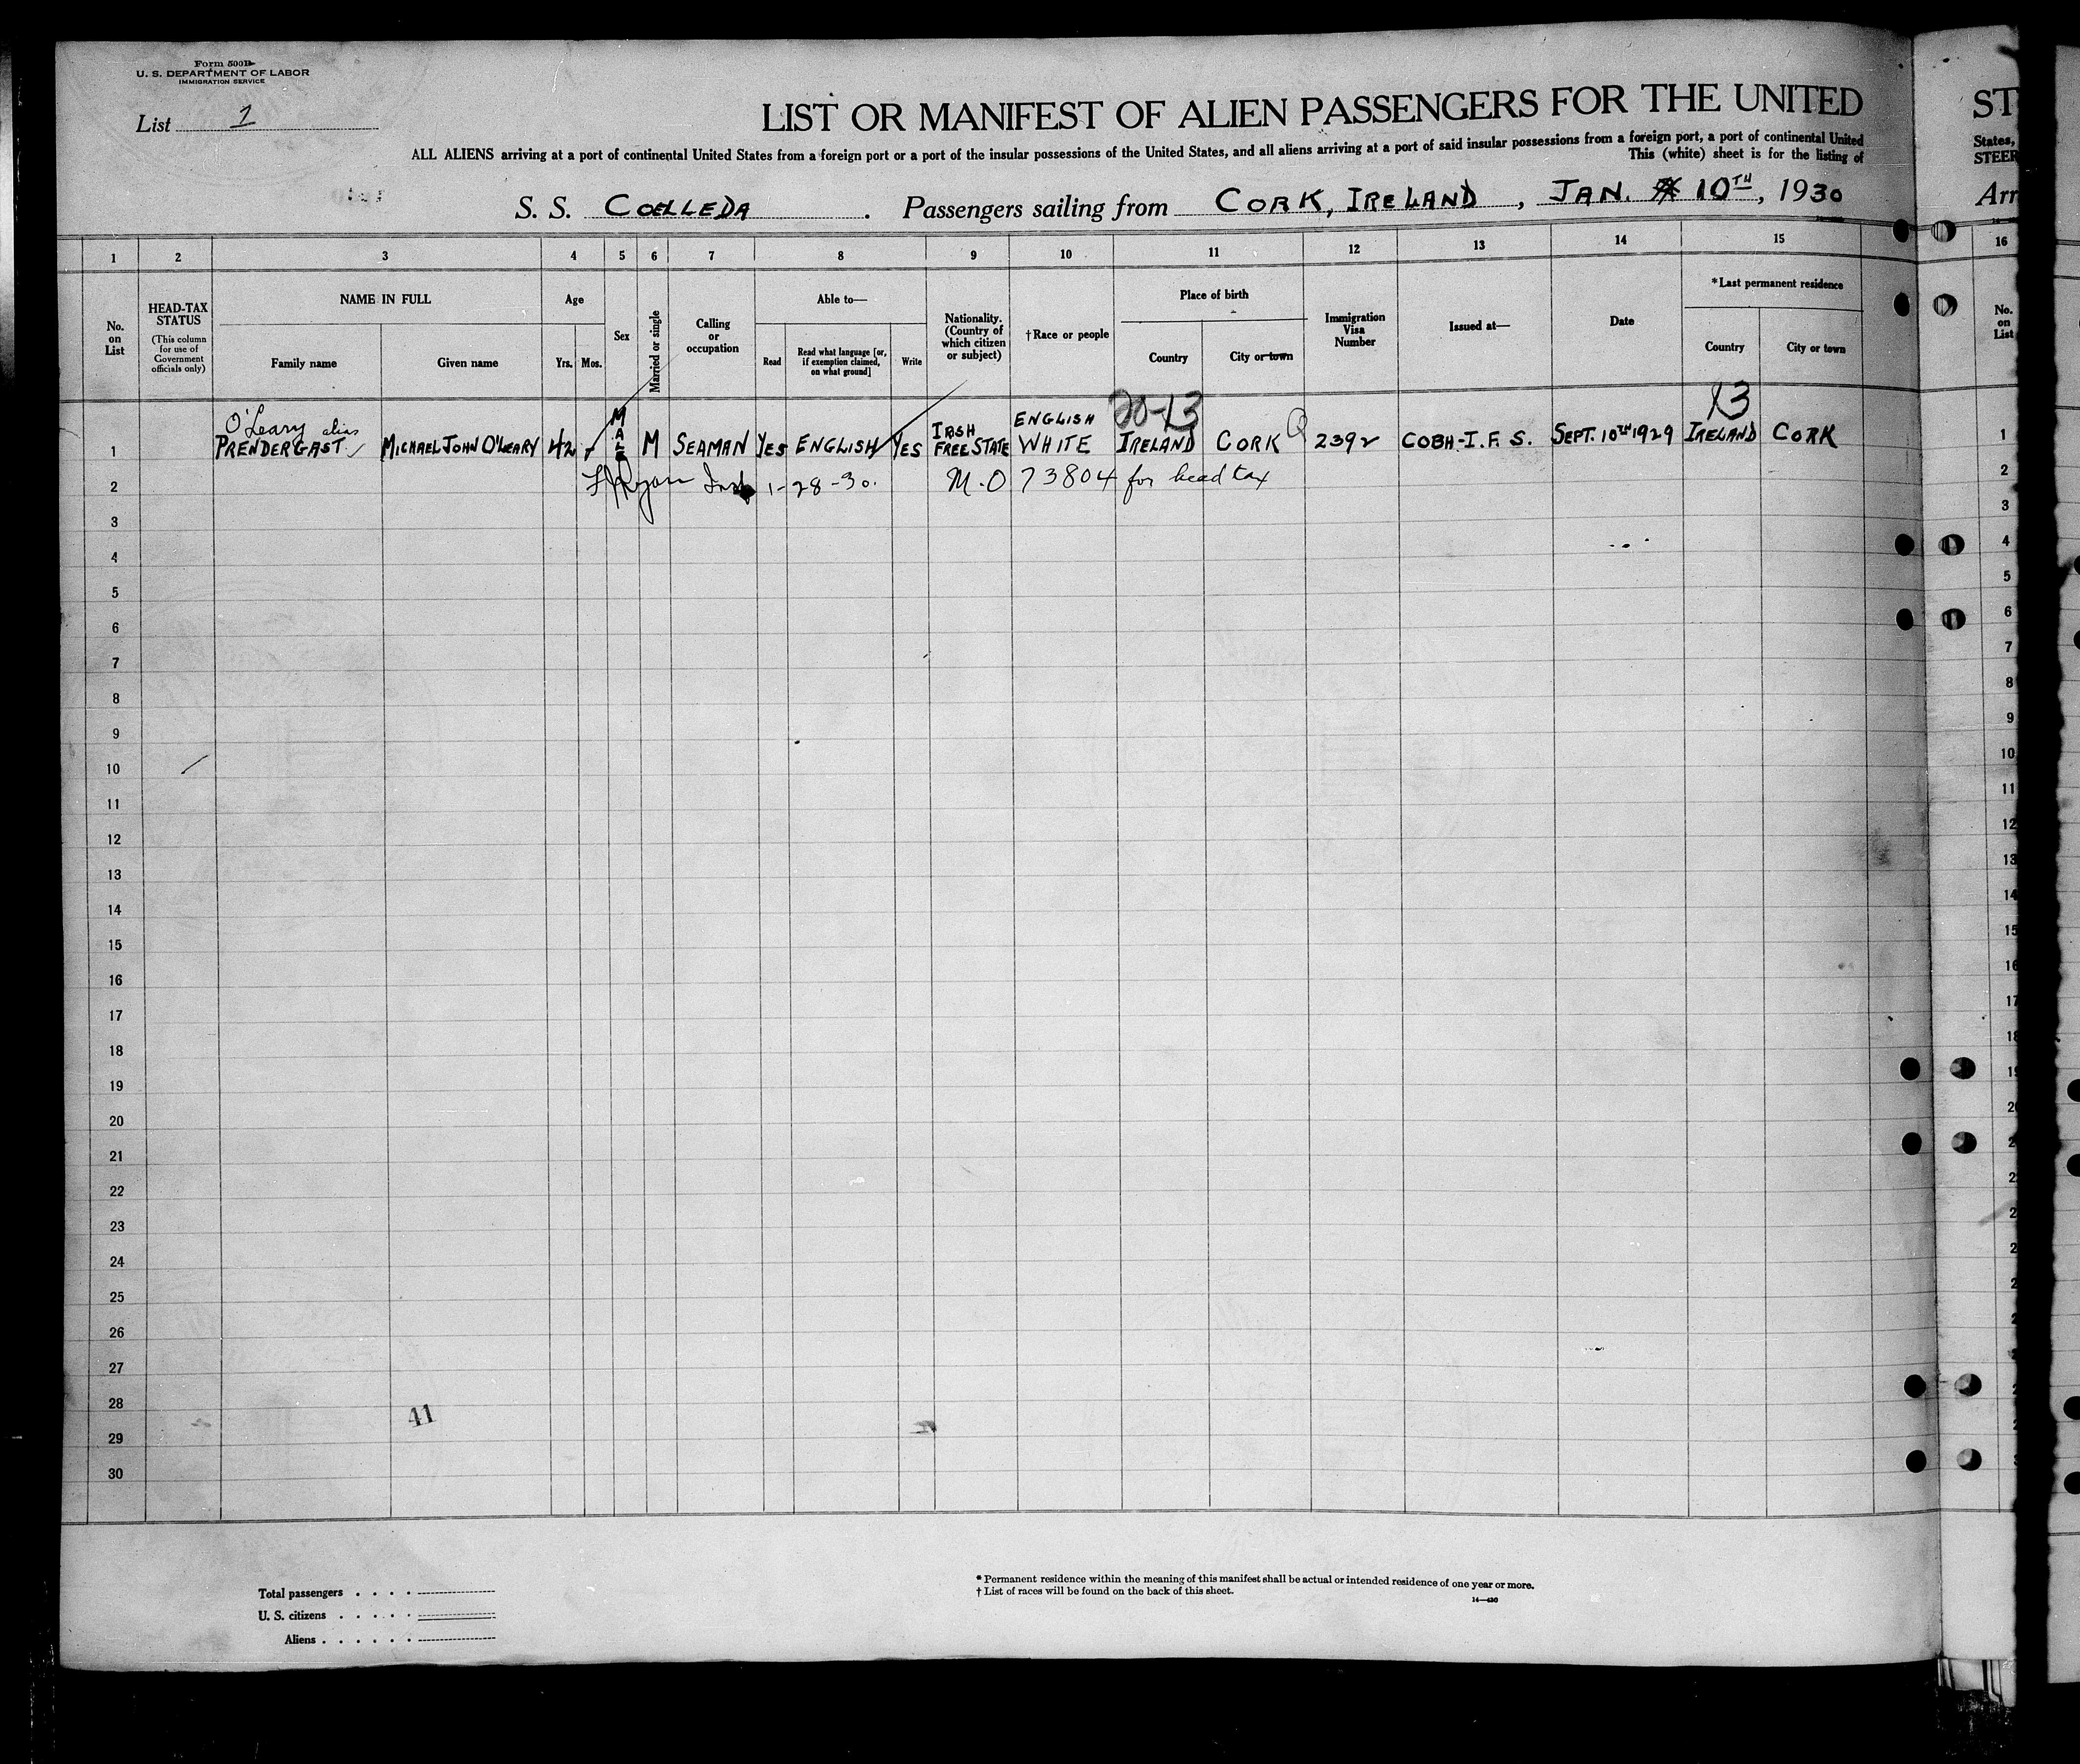 Form 500B
U. S. DEPARTMENT OF LABOR
IMMIGRATION SERVICE
List 1
LIST OR MANIFEST OF ALIEN PASSENGERS FOR THE UNITED
ST
ALL ALIENS arriving at a port of continental United States from a foreign port or a port of the insular possessions of the United States, and all aliens arriving at a port of said insular possessions from a foreign port, a port of continental United
States,
This (white) sheet is for the listing of
STEER
S. S. COELLEDA . Passengers sailing from CORK, IRELAND , JAN. 10TH, 1930
Arr
1 2 3 4 5 6 7 8 9 10 11 12 13 14 15 16
No. on List
HEAD-TAX STATUS
(This column for use of Government officials only)
NAME IN FULL
Family name
Given name
Age
Yrs.
Mos.
Sex
Married or single
Calling or occupation
Able to—
Read
Read what language [or, if exemption claimed, on what ground]
Write
Nationality. (Country of which citizen or subject)
†Race or people
Place of birth
Country
City or town
Immigration Visa Number
Issued at—
Date
*Last permanent residence
Country
City or town
No. on List
O'Leary alias
ENGLISH
20-13
13
1 PRENDERGAST MICHAEL JOHN O'LEARY 42 MALE M SEAMAN YES ENGLISH YES IRSH FREE STATE WHITE IRELAND CORK 2392 COBH-I.F.S. SEPT. 10TH 1929 IRELAND CORK 1
2 Ryan Insp 1-28-30. M.O 73804 for head tax 2
3 3
4 4
5 5
6 6
7 7
8 8
9 9
10 10
11 11
12 12
13 13
14 14
15 15
16 16
17 17
18 18
19
20
21
22
23
24
25
26
27
28
41
29
30
Total passengers . . . .
U. S. citizens . . . . .
Aliens . . . . . .
* Permanent residence within the meaning of this manifest shall be actual or intended residence of one year or more.
† List of races will be found on the back of this sheet.
14—430